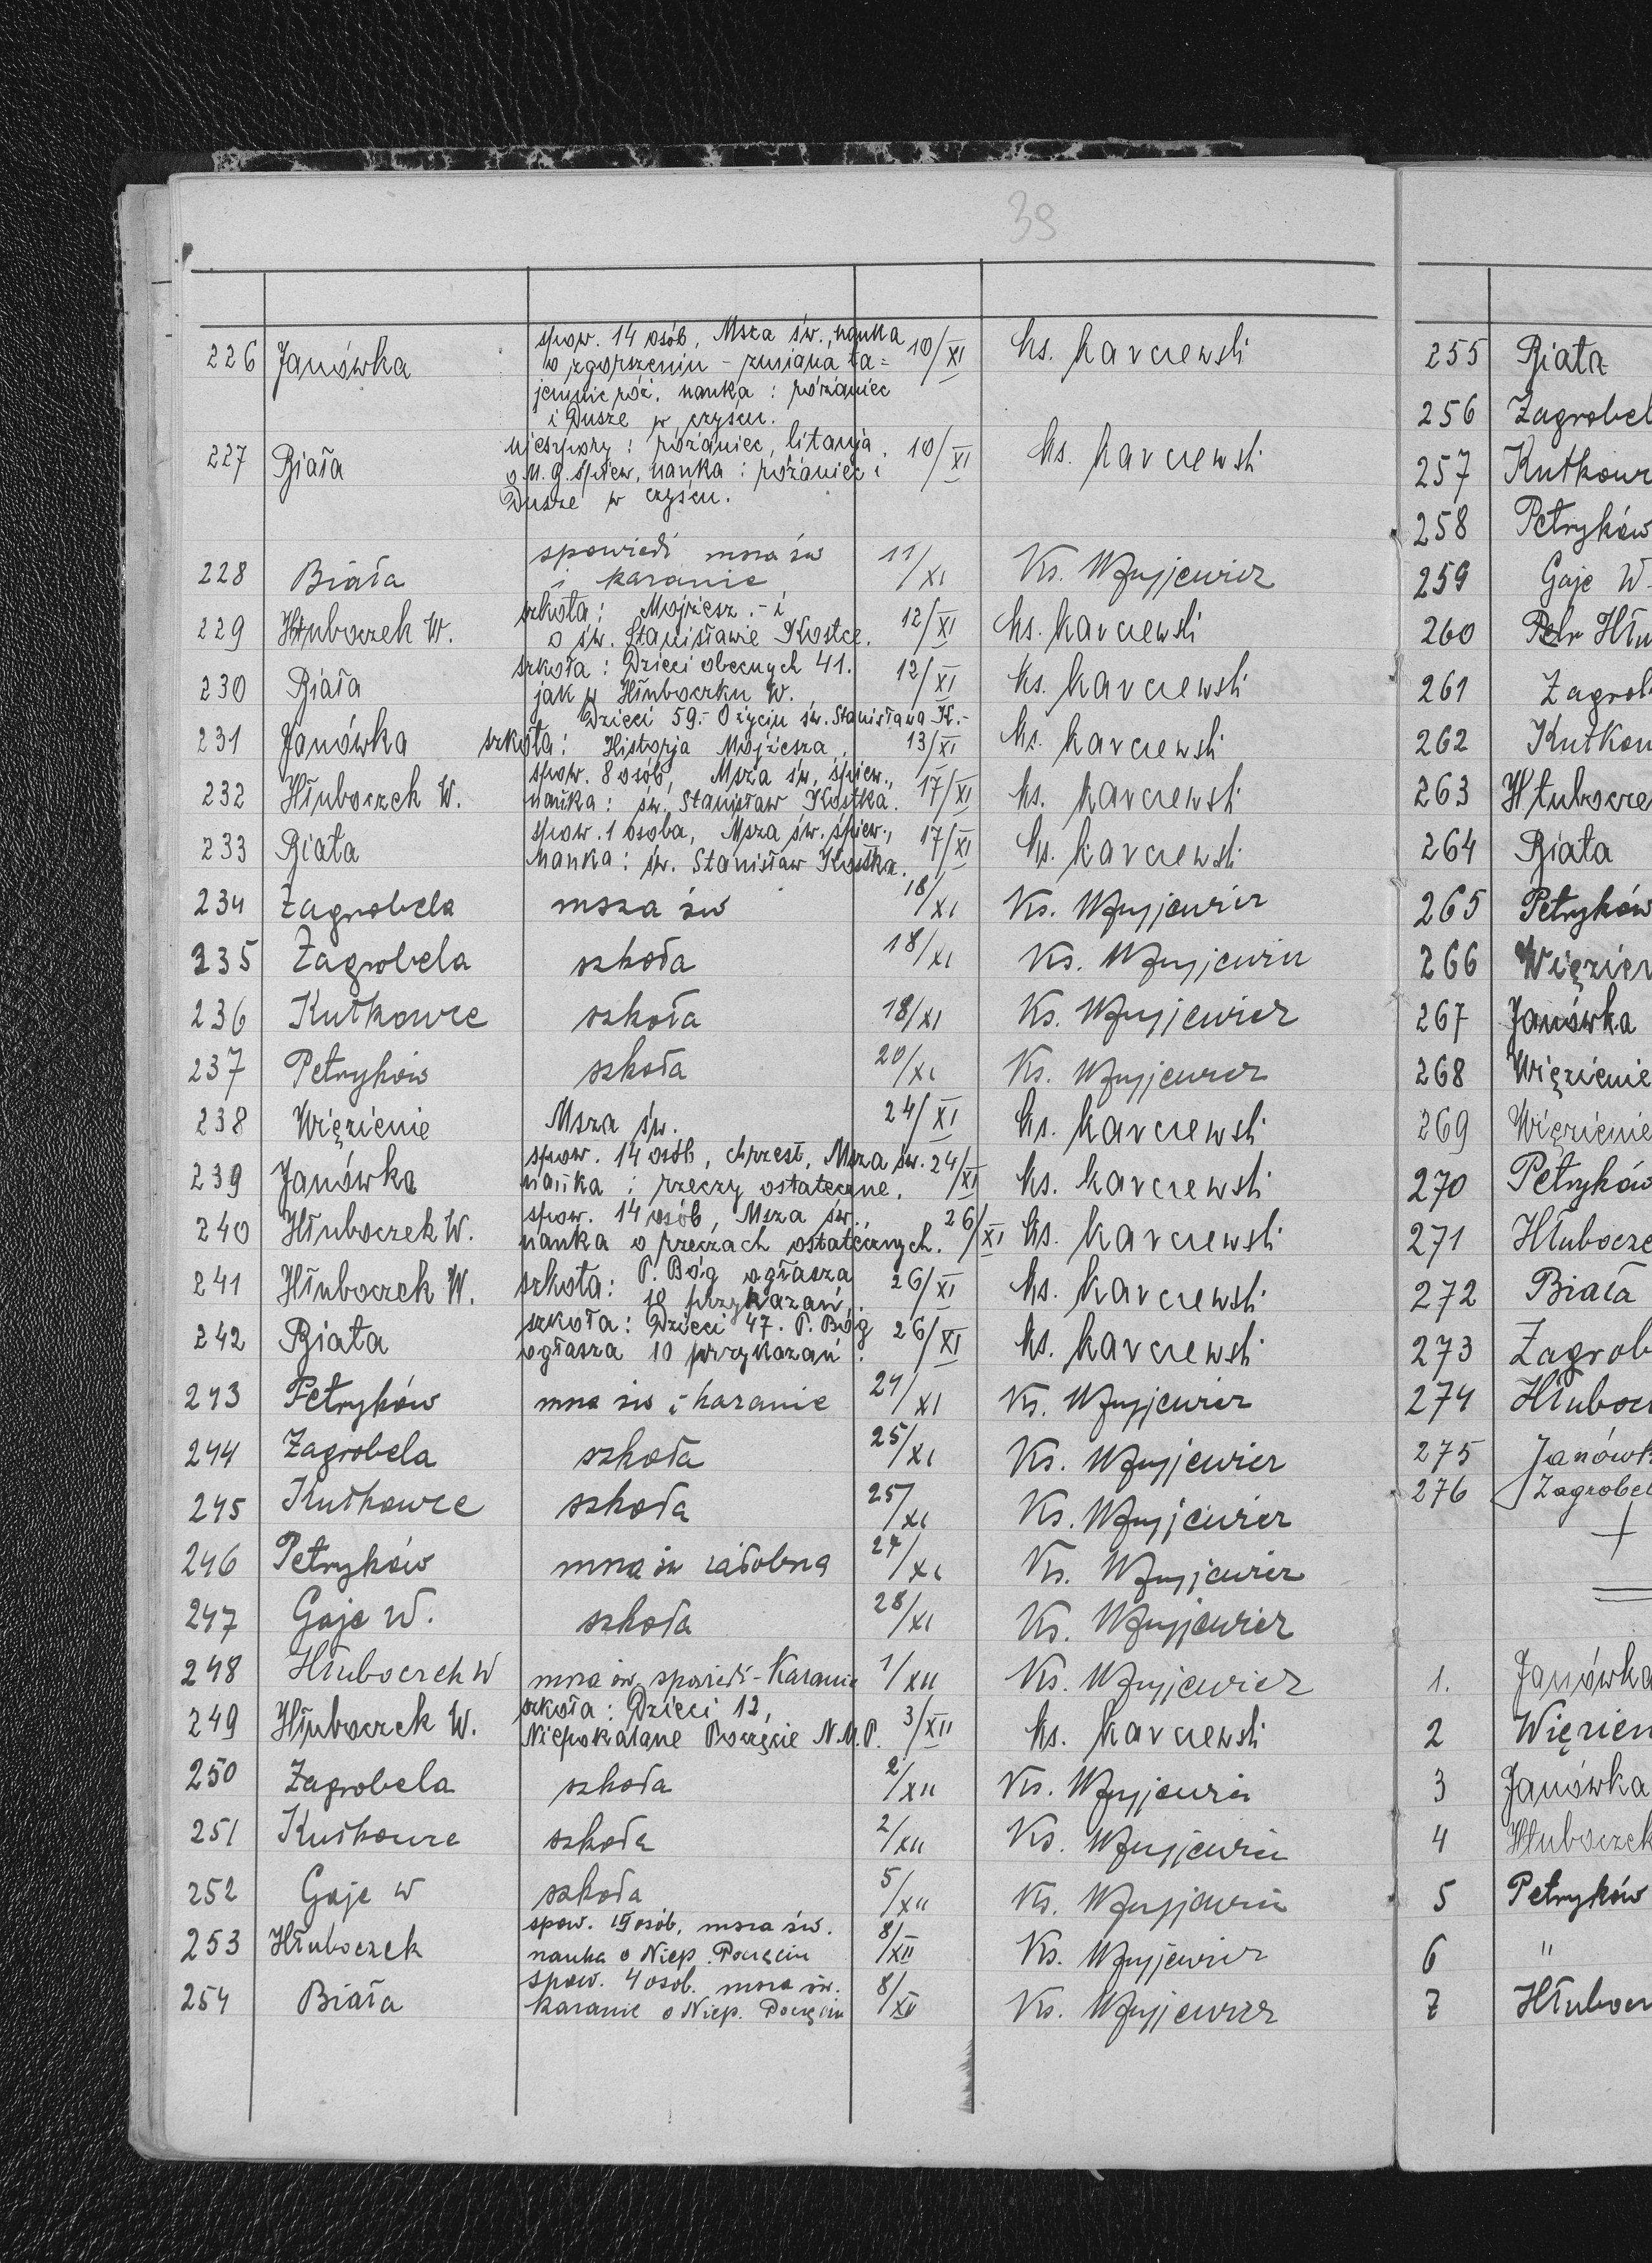 39
226 Janówka spow. 14 osób, Msza św., nauka 10/XI ks. Karczewski
o zgorszeniu - zmiana ta=
jemnic róż. nauka : różaniec
i Dusze w czyśću.
227 Biała nieszpory : różaniec, litanja 10/XI ks. Karczewski
o M. B. śpiew, nauka : różaniec i
Dusze w czyśću.
228 Biała spowiedź msza św 11/XI Ks.
i kazanie
229 Hłuboczek W. szkoła : Mojżesz. - i 12/XI ks. Karczewski
o św. Stanisławie Kostce.
230 Biała szkoła : Dzieci obecnych 41. 12/XI ks. Karczewski
jak w Hłuboczku W.
Dzieci 59.- O życiu św. Stanisława K.-
231 Janówka szkoła : Historja Mojżesza. 13/XI ks. Karczewski
232 Hłuboczek W. spow. 8 osób, Msza św, śpiew., 17/XI ks. Karczewski
nauka : św. Stanisław Kostka.
233 Biała spow. 1 osoba, Msza św. śpiew., 17/XI ks. Karczewski
Nanka : św. Stanisław Kostka.
234 Zagrobela msza św 18/XI Ks.
235 Zagrobela szkoła 18/XI Ks.
236 Kutkowce szkoła 18/XI Ks.
237 Petryków szkoła 20/XI Ks.
238 Więzienie Msza św. 24/XI ks. Karczewski
239 Janówka spow. 14 osób, chrzest, Msza św. 24/XI ks. Karczewski
nauka : rzeczy ostateczne.
240 Hłuboczek W. spow. 14 osób, Msza św., 26/XI ks. Karczewski
nauka o rzeczach ostatecznych.
241 Hłuboczek W. szkoła : P. Bóg ogłasza 26/XI ks. Karczewski
10 przykazań.
242 Biała szkoła : Dzieci 47. P. Bóg 26/XI ks. Karczewski
ogłasza 10 przykazań.
243 Petryków msza św i kazanie 24/XI Ks.
244 Zagrobela szkoła 25/XI Ks.
245 Kutkowce szkoła 25/XI Ks.
246 Petryków msza św żałobna 27/XI Ks.
247 Gaje W. szkoła 28/XI Ks.
248 Hłuboczek W msza św, spowiedź - Kazanie 1/XII Ks.
249 Hłuboczek W. szkoła : Dzieci 12, 3/XII ks. Karczewski
Niepokalane Poczęcie N.M.P.
250 Zagrobela szkoła 2/XII Ks.
251 Kutkowce szkoła 2/XII Ks.
252 Gaje W szkoła 5/XII Ks.
253 Hłuboczek spow. 15 osób, msza św. 8/XII Ks.
nauka o Niep. Poczęciu
254 Biała spow. 4 osob. msza św. 8/XII Ks.
kazanie o Niep. Poczęciu
255 Biała
256 Zagrobel
257 Kutkow
258 Petryków
259 Gaje W.
260 Hłu
261 Zagrob
262 Kutkow
263 Hłubocze
264 Biała
265 Petryków
266 Więzien
267 Janówka
268 Więzienie
269 Więzienie
270 Petryków
271 Hłubocze
272 Biała
273 Zagrob
274 Hłubocz
275 Janówk
276 Zagrobel
1. Janówka
2 Więzien
3 Janówka
4 Hłuboczek
5 Petryków
6 "
7 Hłubocz